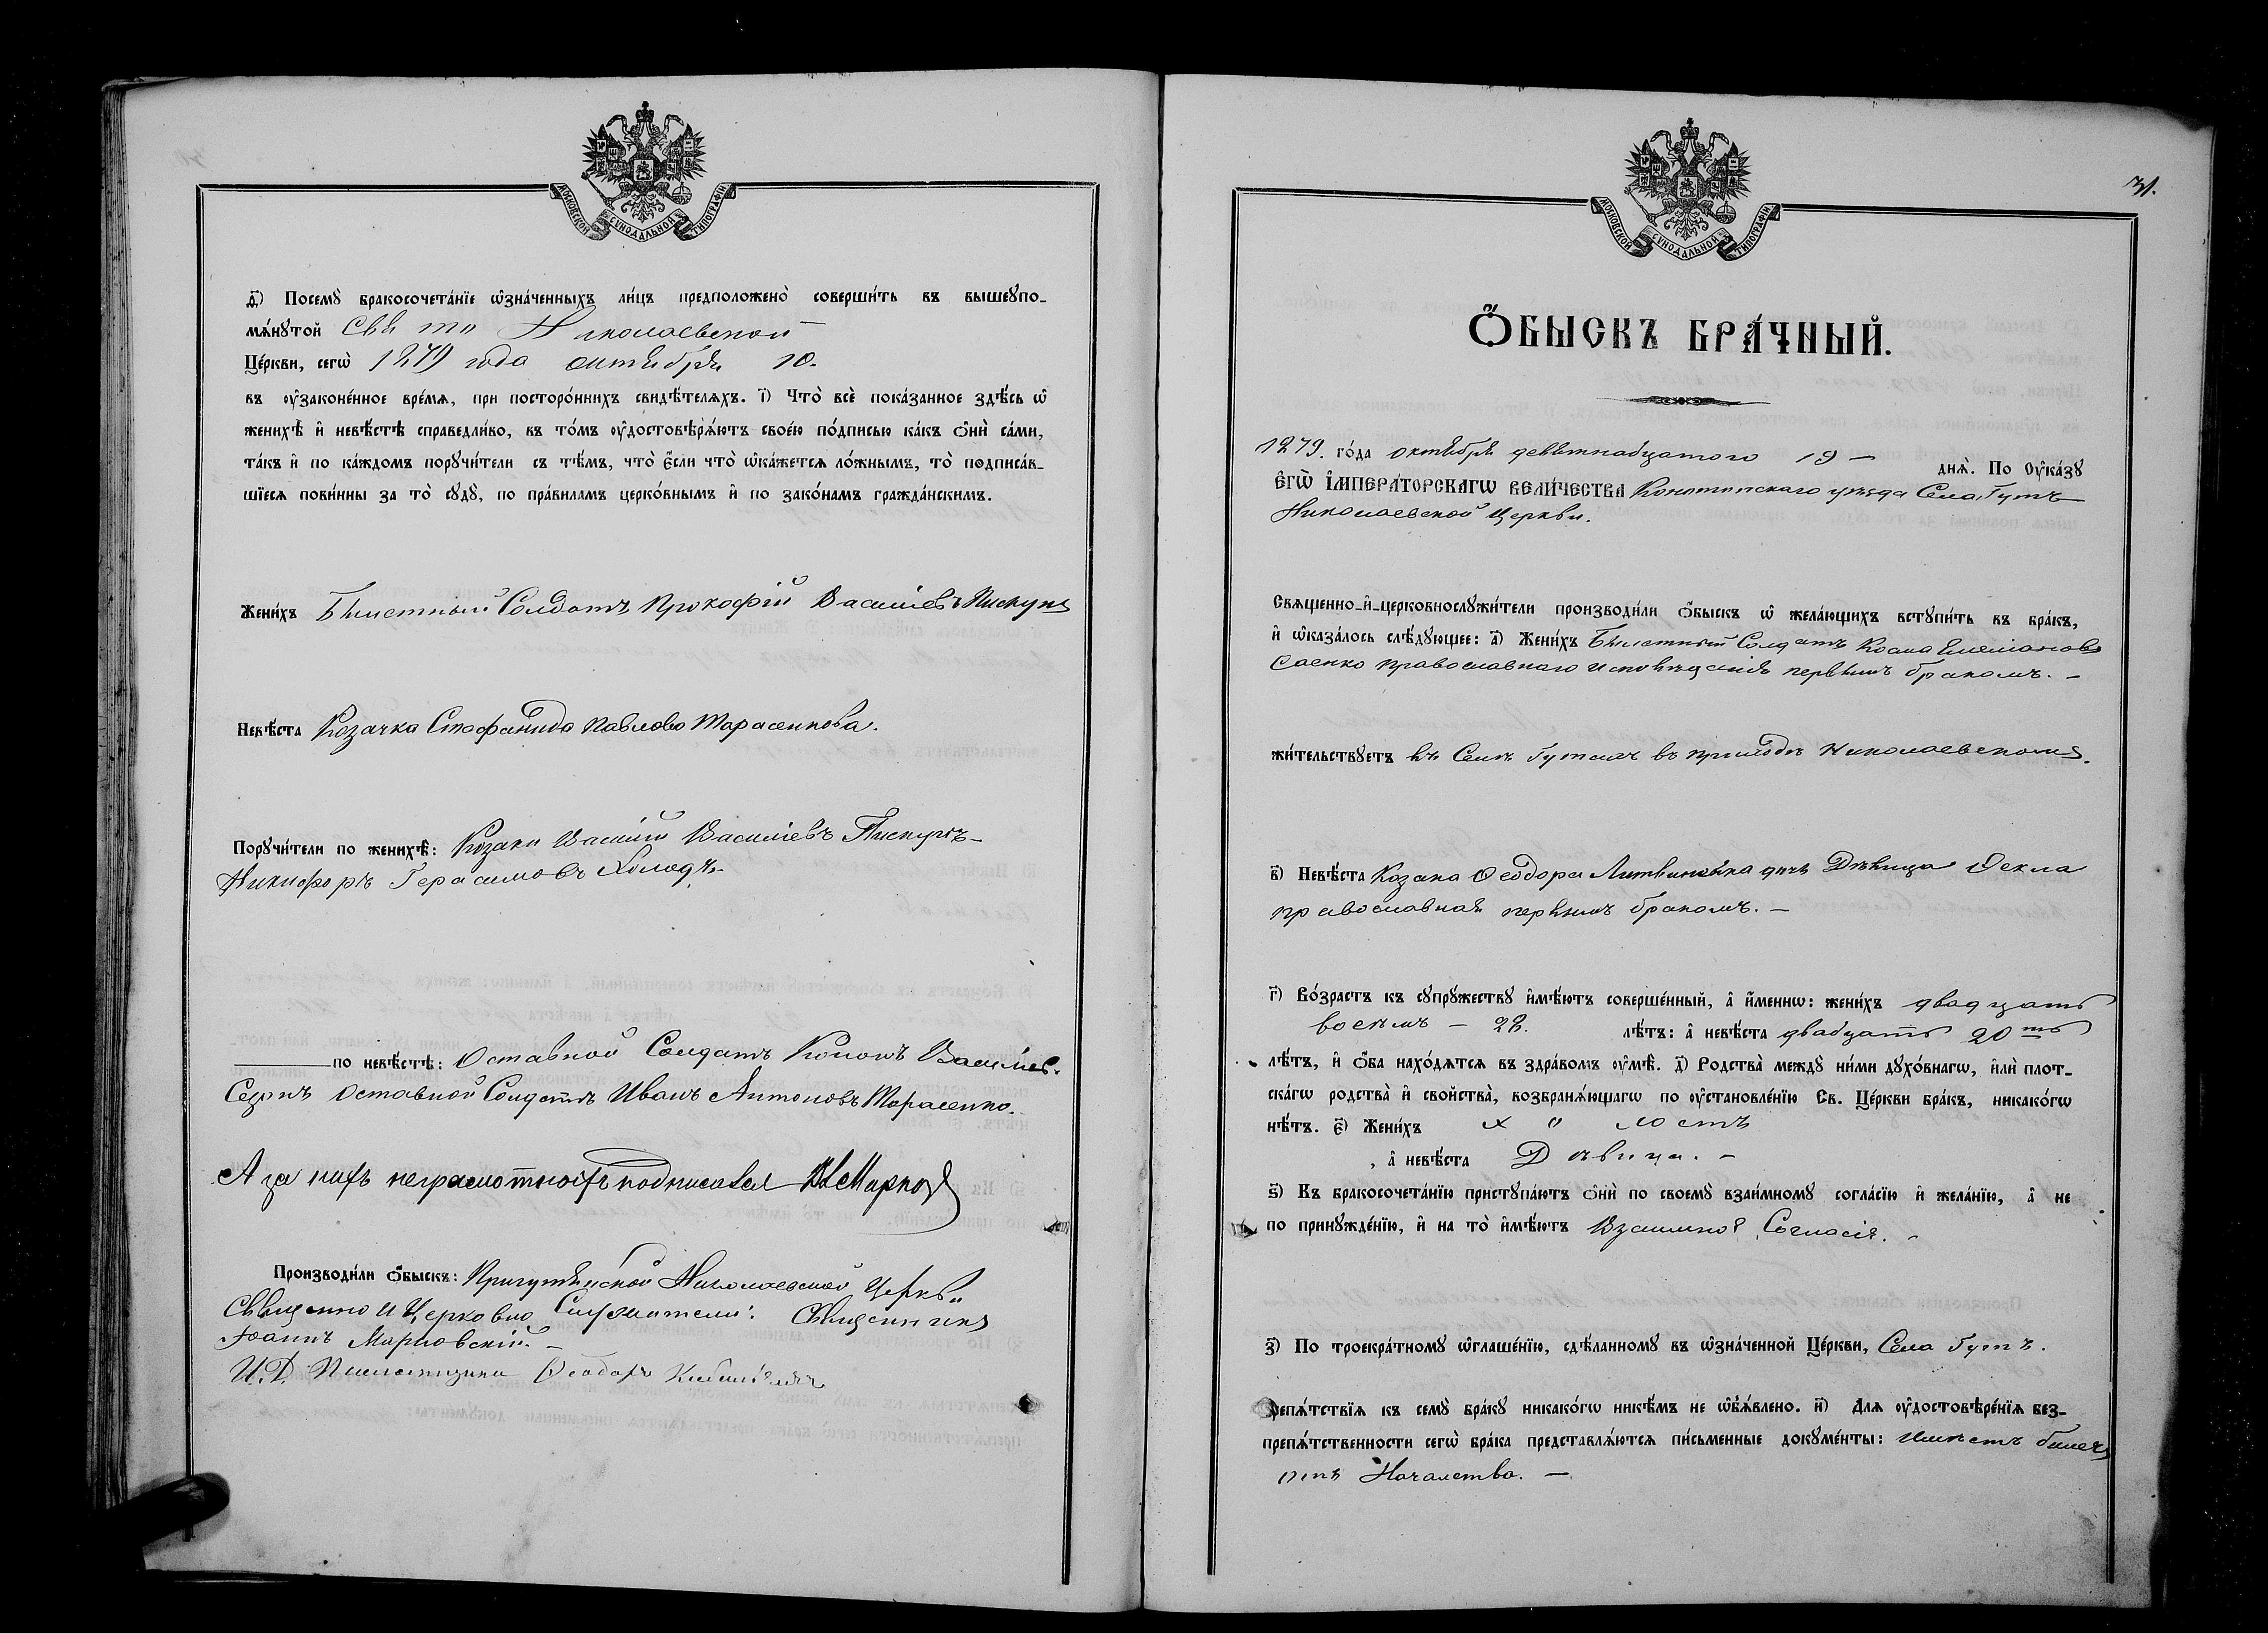 МОСКОВСКОЙ СѴНОДАЛЬНОЙ ТИПОГРАФІИ
д҃) Посемꙋ̀ бракосочета́нїе ѡ҆зна́ченныхъ ли́цъ предположено̀ соверши́ть въ вышеꙋпо-
мѧ́нꙋтой Свято Николаевской
Це́ркви, сегѡ̀ 1879 года октября 10.
въ ᲂу҆законе́нное вре́мѧ, при посторо́ннихъ свидѣ́телѧхъ. і҃) Что̀ всѐ пока́занное здѣ́сь ѡ҆
женихѣ̀ и҆ невѣ́стѣ справедли́во, въ то́мъ ᲂу҆достовѣрѧ́ютъ свое́ю по́дписью ка́къ ѻ҆нѝ са́ми,
та́къ и҆ по ка́ждомъ порꙋчи́тели съ тѣ́мъ, что̀ є҆́сли что̀ ѡ҆ка́жетсѧ ло́жнымъ, то̀ подписа́в-
шїесѧ пови́нны за то̀ сꙋдꙋ̀, по пра́виламъ церко́внымъ и҆ по зако́намъ гражда́нскимъ.
Жени́хъ Билетный Солдатъ Прокофій Василіевъ Пискунъ
Невѣ́ста Козачка Стефанида Павлова Тарасенкова.
Порꙋчи́тели по женихѣ̀: Козаки Василій Василіевъ Пискунъ
Никифоръ Герасимовъ Холодъ
по невѣ́стѣ: Оставной Солдатъ Кононъ Василіев.
Оставной Солдатъ Иванъ Антоновъ Тарасенко.
А за нихъ неграмотныхъ подписался
Производи́ли ѻ҆́быскъ: Николаевской Церкви
Священно и Церковно Служители: Священникъ
Іоаннъ
И. Д. Псаломщика Ѳеодоръ
31.
МОСКОВСКОЙ СѴНОДАЛЬНОЙ ТИПОГРАФІИ
Ѻ҆́БЫСКЪ БРА́ЧНЫЙ.
1879. го́да октября девятнадцатого 19 — днѧ̀. По Оу҆ка́зꙋ
Є҆ГѠ̀ І҆МПЕРА́ТОРСКАГѠ ВЕЛИ́ЧЕСТВА Конотопскаго уѣзда Села Гутъ
Николаевской Церкви.
Свѧщенно-и҆-церковнослꙋжи́тели производи́ли ѻ҆́быскъ ѡ҆ жела́ющихъ встꙋпи́ть въ бра́къ,
и҆ ѡ҆каза́лось слѣ́дꙋющее: а҃) Жени́хъ Билетный Солдатъ Косма Емеліановъ
Саенко православнаго исповѣданія первымъ бракомъ. —
жи́тельствꙋетъ въ Селѣ Гутахъ въ приходѣ Николаевскомъ.
в҃) Невѣ́ста Козака Ѳеодора Литвиненка дочь Дѣвица Ѳекла
православная первымъ бракомъ. —
г҃) Во́зрастъ къ сꙋпрꙋ́жествꙋ и҆мѣ́ютъ соверше́нный, а҆ и҆́меннѡ: жени́хъ двадцать
восемъ — 28. лѣ́тъ: а҆ невѣ́ста двадцать 20ть
лѣ́тъ, и҆ ѻ҆́ба нахо́дѧтсѧ въ здра́вомъ ᲂу҆мѣ̀. д҃) Родства̀ междꙋ̀ ни́ми дꙋхо́внагѡ, и҆лѝ плот-
ска́гѡ родства̀ и҆ свойства̀, возбранѧ́ющагѡ по ᲂу҆становле́нїю Св. Це́ркви бра́къ, никако́гѡ
нѣ́тъ. є҃) Жени́хъ холостъ
, а҆ невѣ́ста Дѣвица. —
ѕ҃) Къ бракосочета́нїю пристꙋпа́ютъ ѻ҆нѝ по своемꙋ̀ взаи́мномꙋ согла́сїю и҆ жела́нїю, а҆ не
по принꙋжде́нїю, и҆ на то̀ и҆мѣ́ютъ Взаимное Согласіе. —
з҃) По троекра́тномꙋ ѡ҆глаше́нїю, сдѣ́ланномꙋ въ ѡ҆зна́ченной Це́ркви, Села Гутъ.
препѧ́тствїѧ къ семꙋ̀ бра́кꙋ никако́гѡ никѣ́мъ не ѡ҆б̾ѧ́влено. и҃) Длѧ ᲂу҆достовѣре́нїѧ без-
препѧ́тственности сегѡ̀ бра́ка представлѧ́ютсѧ пи́сьменные докꙋме́нты: Имѣетъ билетъ
отъ Началства. —